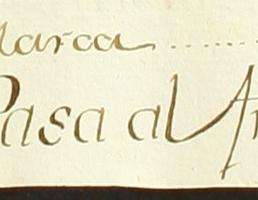 Marca ......
Pasa al Ar